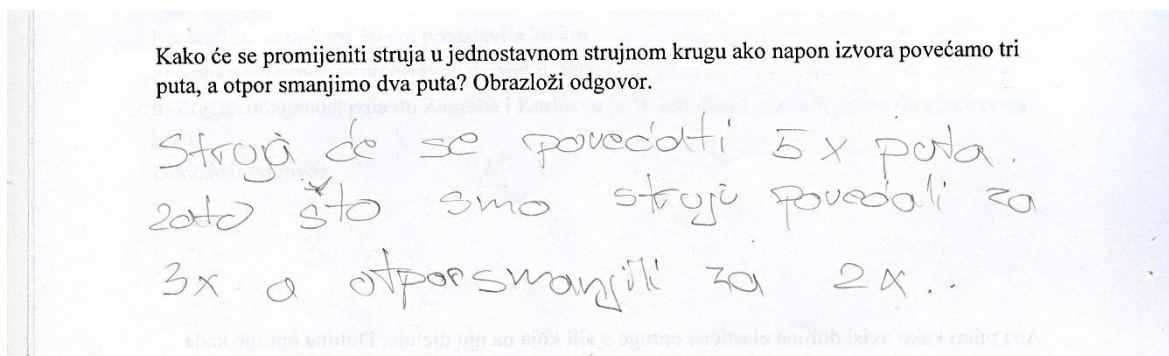 Kako će se promijeniti struja u jednostavnom strujnom krugu ako napon izvora povećamo tri
puta, a otpor smanjimo dva puta? Obrazloži odgovor.
Struja će se povećati 5x puta.
zato što smo struju povećali za
3x a otpor smanjili za 2x..